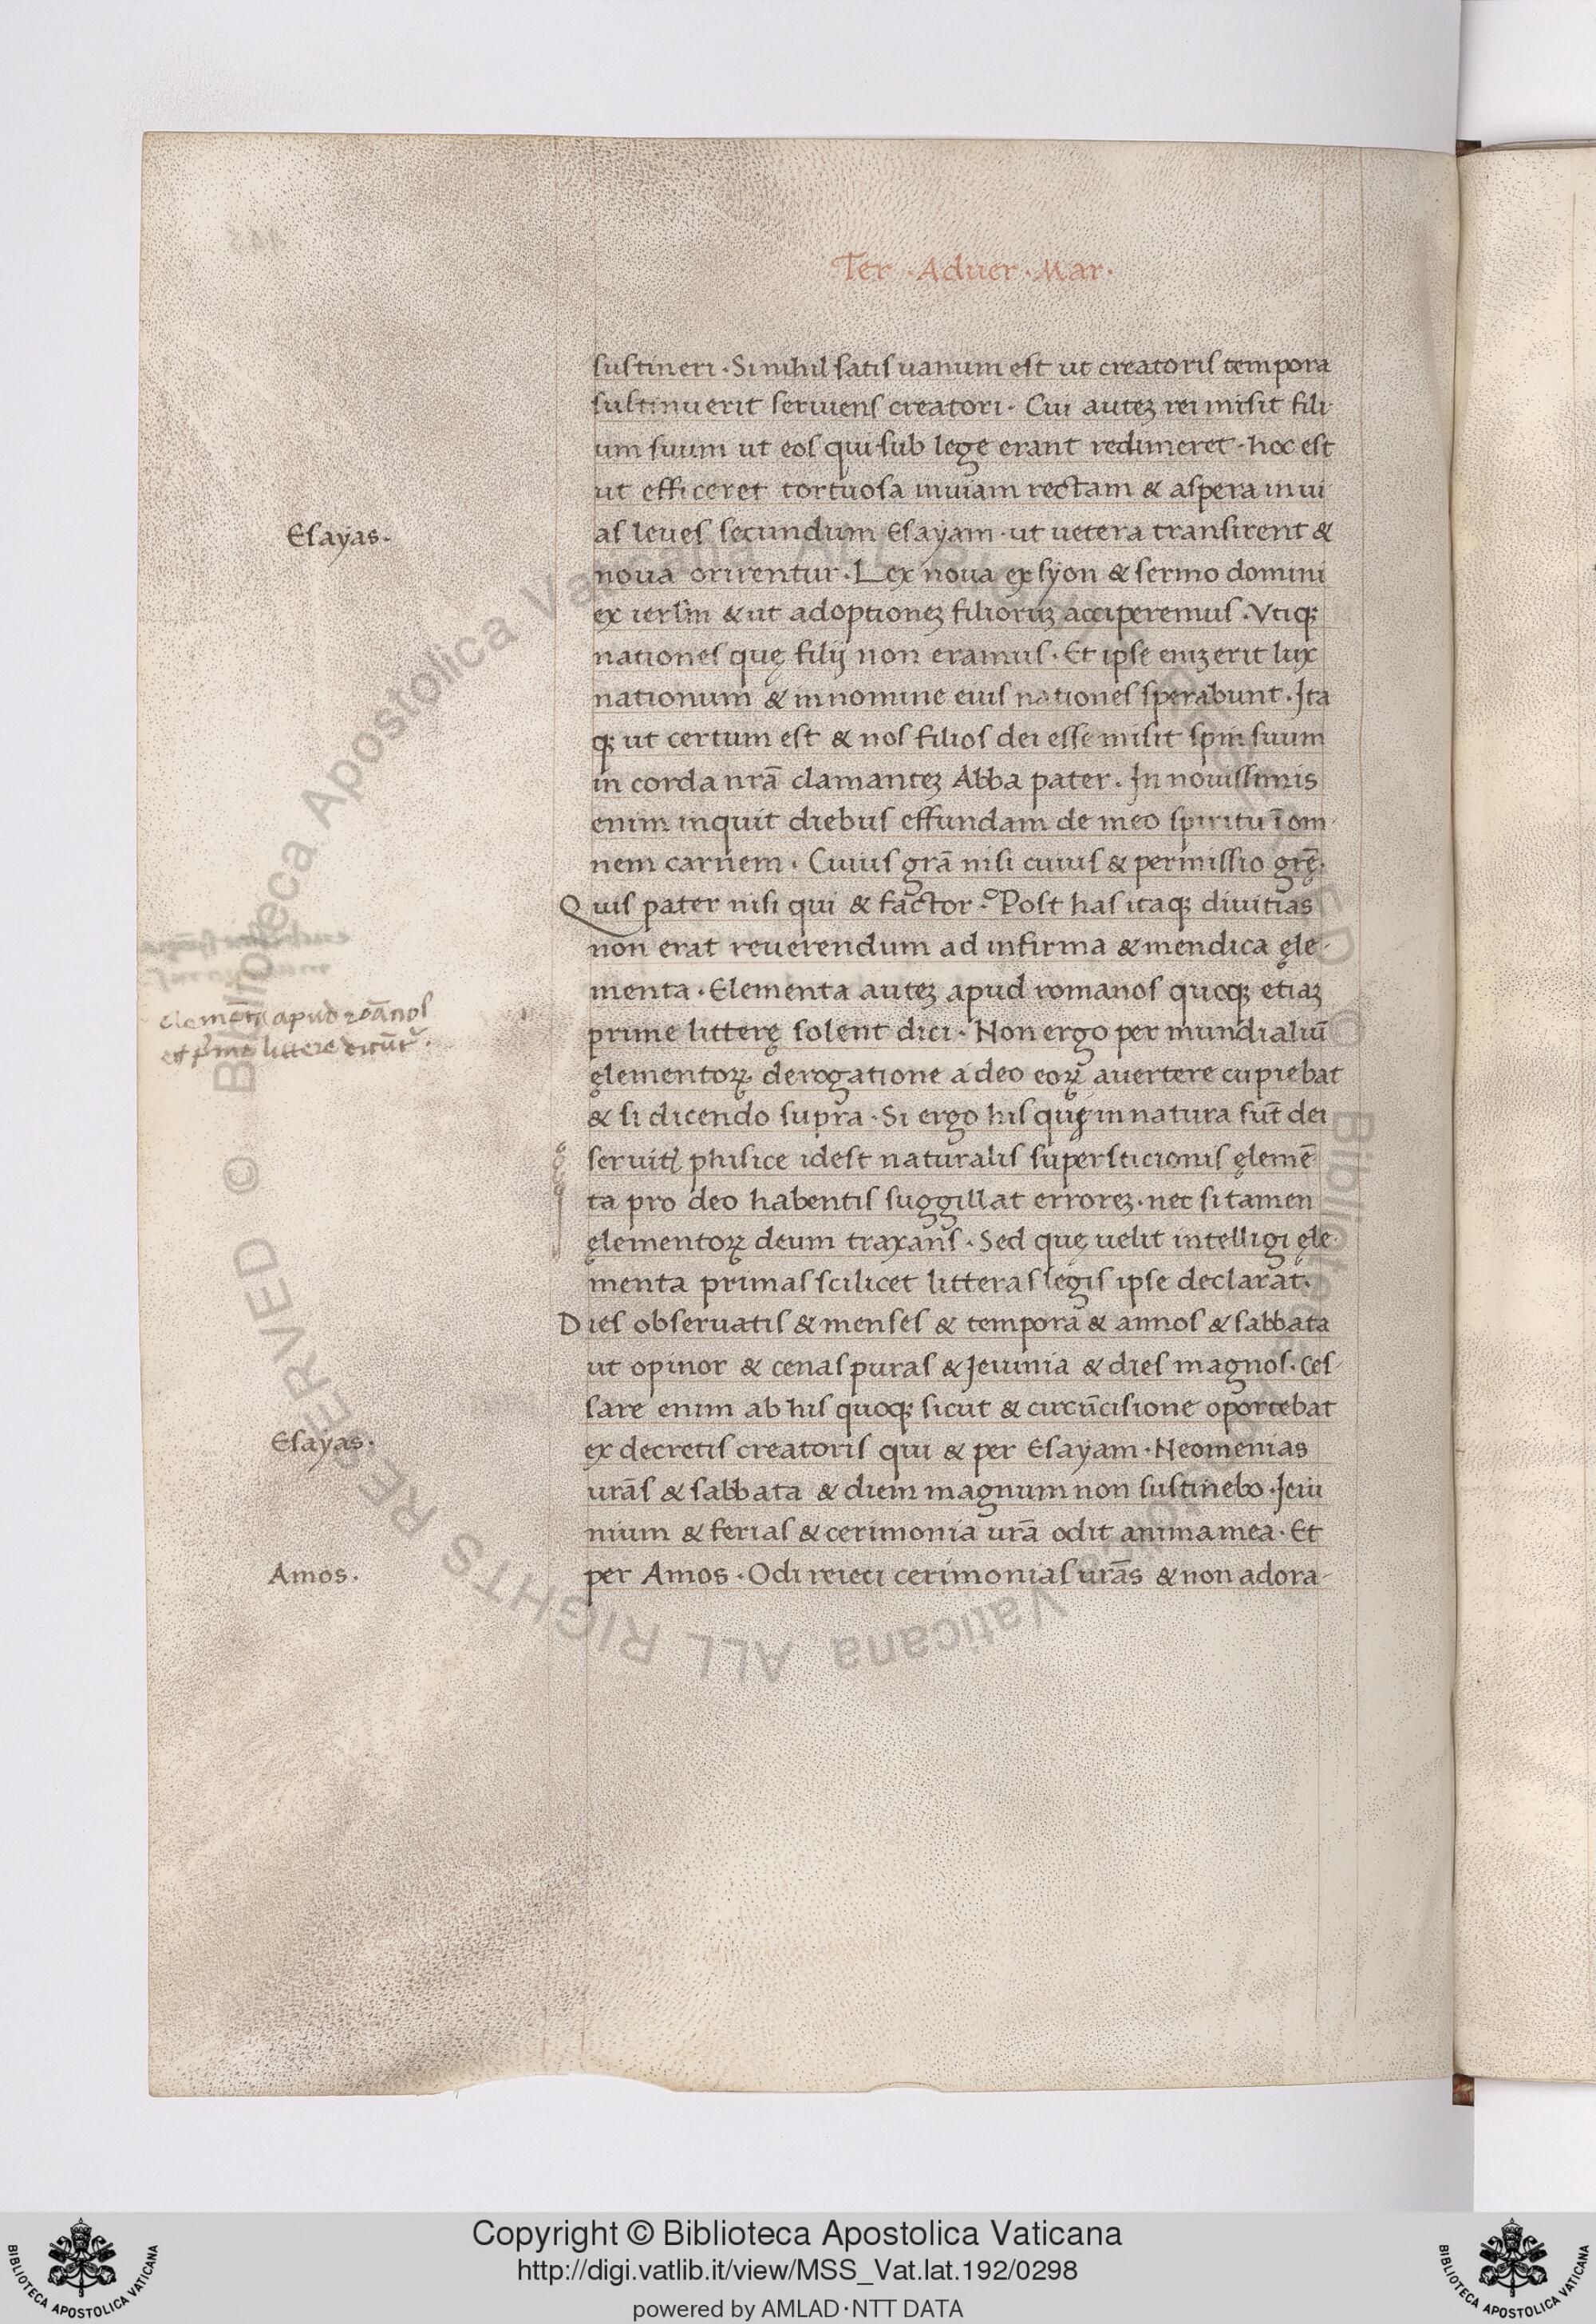 Ter · Aduer · Mar ·
sustineri · Si nihil satis uanum est ut creatoris tempora
sustinuerit seruiens creatori · Cui auteꝫ rei misit fili-
um suum ut eos qui sub lege erant redimeret · hoc est
ut efficeret tortuosa inuiam rectam & aspera in ui
Esayas ·
as leues secundum Esayam · ut uetera transirent &
noua orirentur · Lex noua ex syon & sermo domini
ex ierl̅m & ut adoptioneꝫ filioruꝫ acciperemus · Vtiqꝫ
nationes quę filij non eramus · Et ipse eniꝫ erit lux
nationum & in nomine eius nationes sperabunt · Ita
qꝫ ut certum est & nos filios dei esse misit sp̅m suum
in corda nr̅a clamanteꝫ Abba pater · In nouissimis
enim inquit diebus effundam de meo spiritu ī om-
nem carnem · Cuius gr̅a nisi cuius & permissio gr̅ę ·
Quis pater nisi qui & factor · Post has itaqꝫ diuitias
non erat reuerendum ad infirma & mendica ęle-
menta · Elementa auteꝫ apud romanos quoqꝫ etiaꝫ
elemēta apud roānos
prime litterę solent dici · Non ergo per mundialiū
ęlementoꝝ derogatione a deo eoꝝ auertere cupiebat
& si dicendo supra · Si ergo his quę in natura sūt dei
seruitis phisice idest naturalis supersticionis ęlemē
ta pro deo habentis suggillat erroreꝫ · nec si tamen
ęlementoꝝ deum taxans · Sed quę uelit intelligi ęle-
menta primas scilicet litteras legis ipse declarat ·
Dies obseruatis & menses & tempora & annos & sabbata
ut opinor & cenas puras & Jeiunia & dies magnos · Ces-
sare enim ab his quoqꝫ sicut & circūcisione oportebat
Esayas ·
ex decretis creatoris qui & per Esayam · Neomenias
ur̅as & sabbata & diem magnum non sustinebo · Jeiu
nium & ferias & cerimonia ur̅a odit anima mea · Et
Amos ·
per Amos · Odi reieci cerimonias ur̅as & non adora-
Copyright © Biblioteca Apostolica Vaticana
http://digi.vatlib.it/view/MSS_Vat.lat.192/0298
powered by AMLAD·NTT DATA
BIBLIOTECA APOSTOLICA VATICANA
BIBLIOTECA APOSTOLICA VATICANA